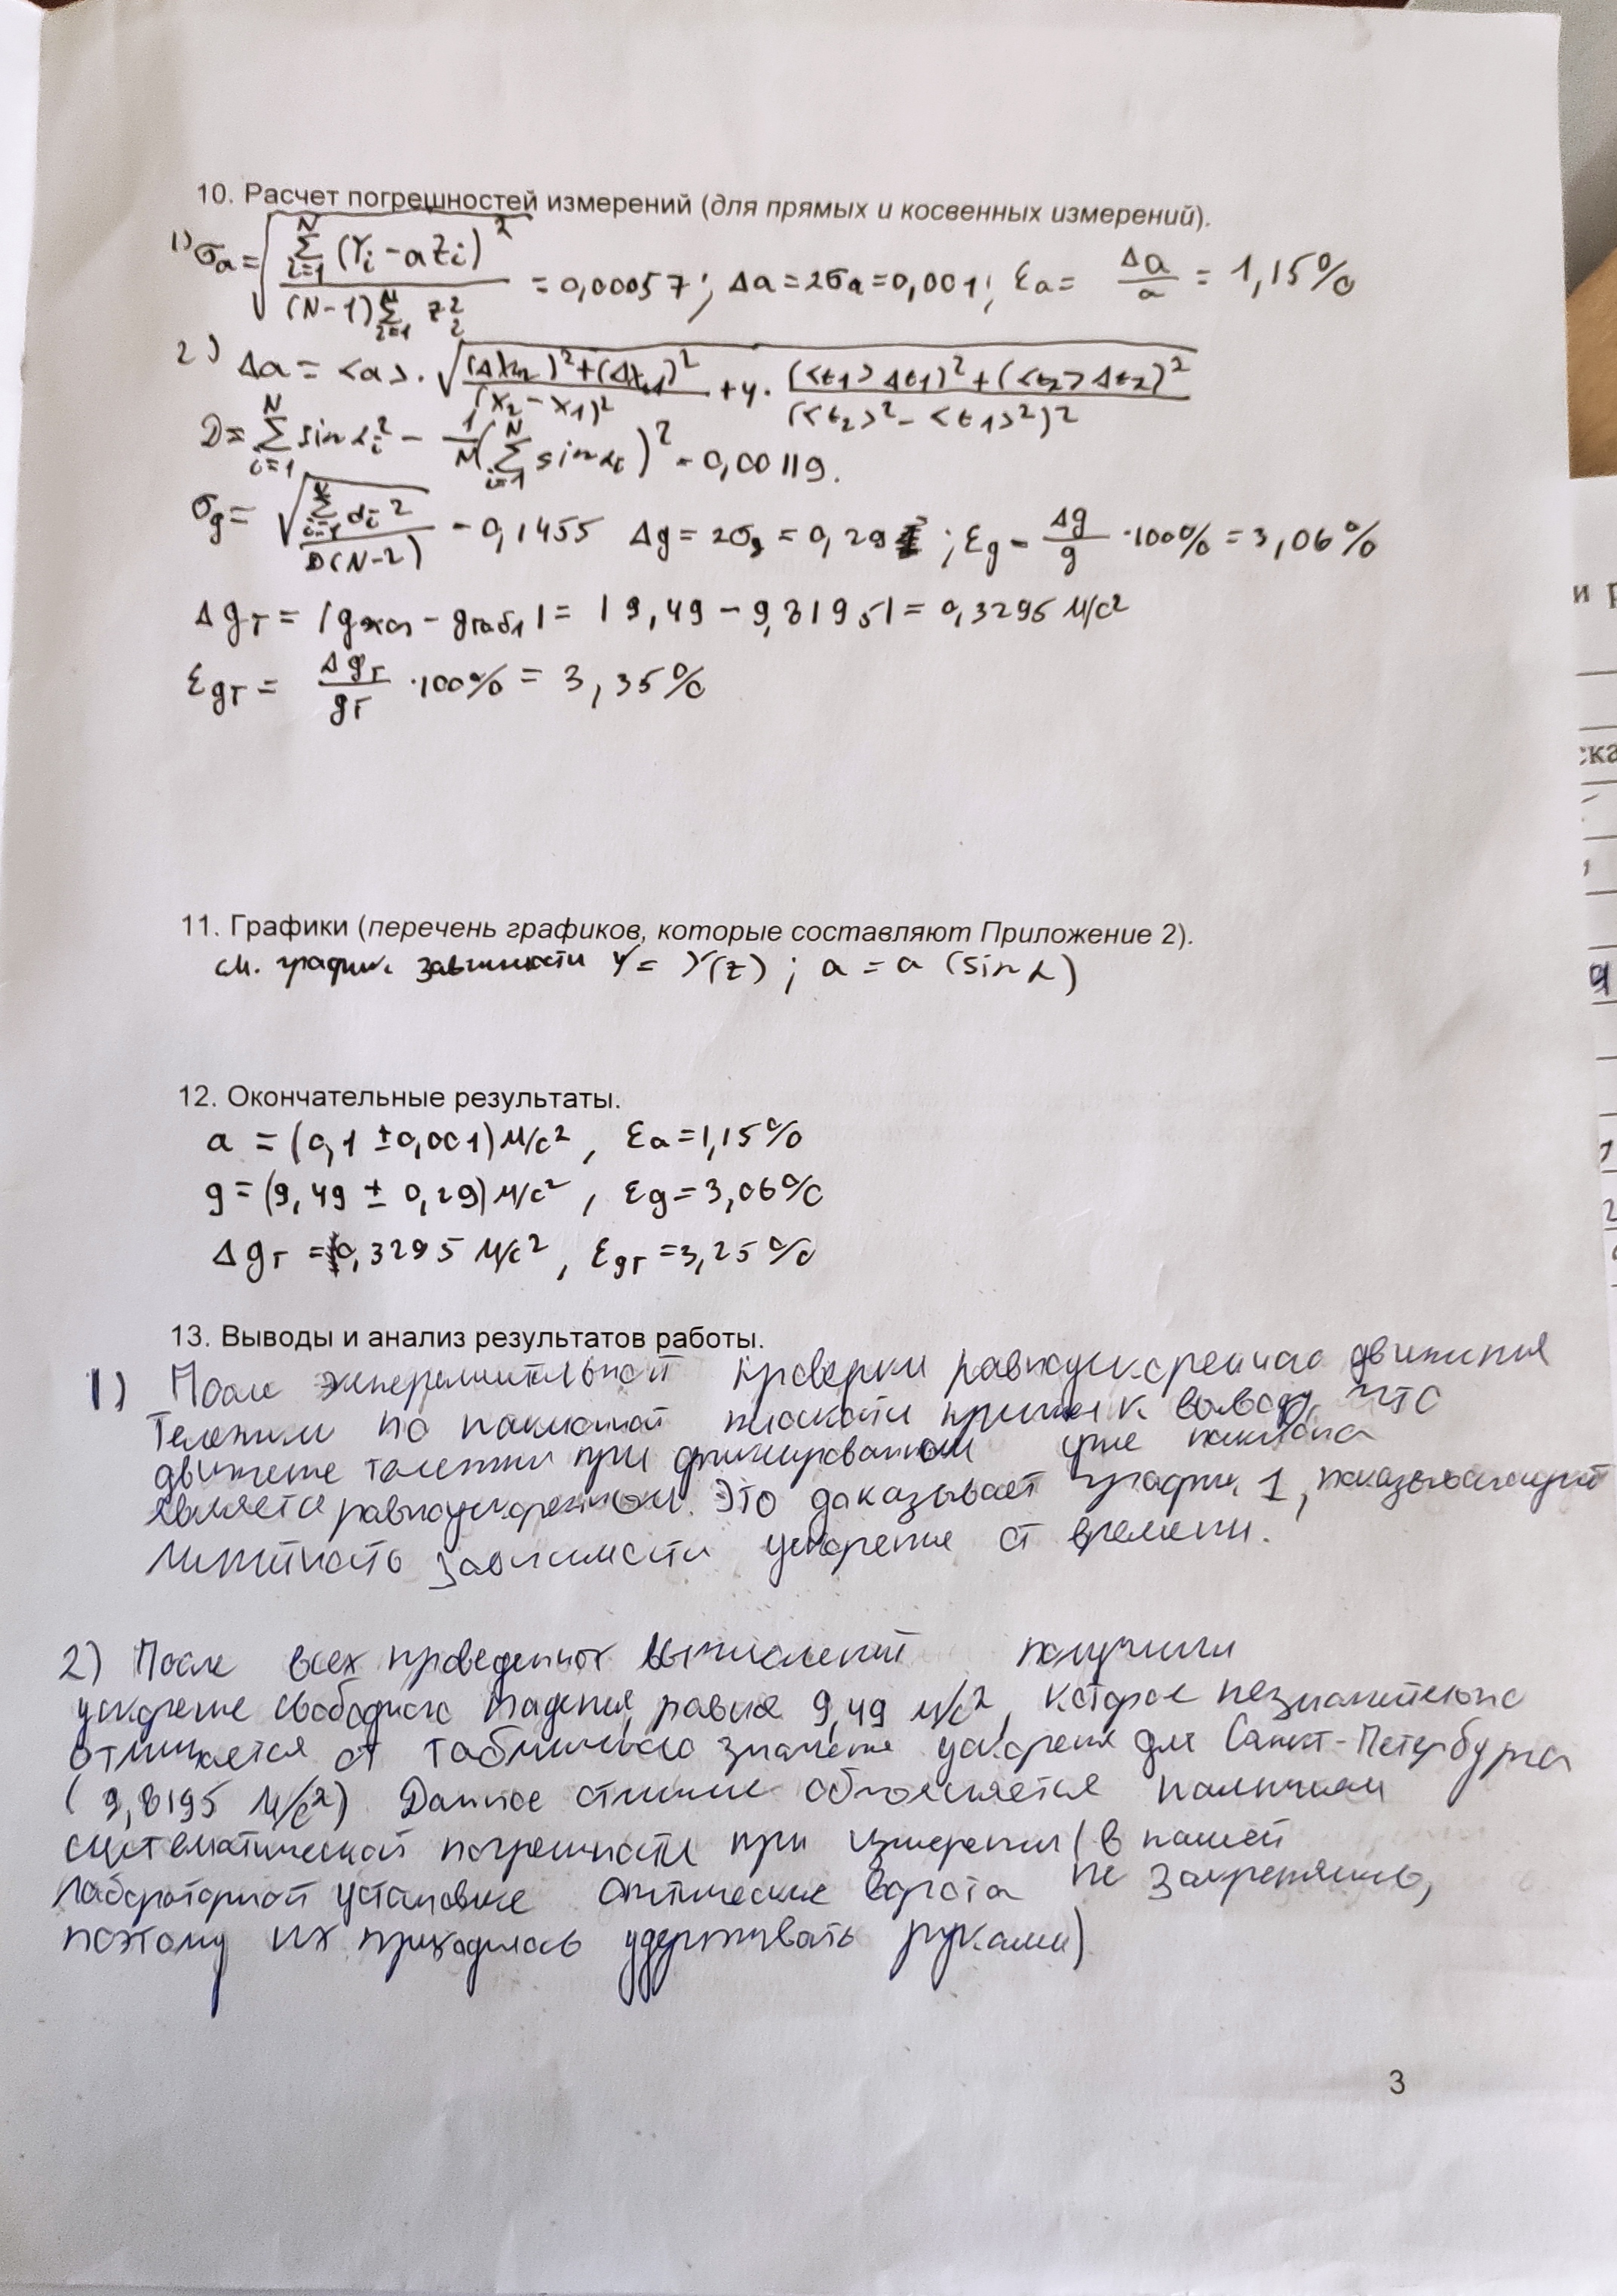 10. Расчет погрешностей измерений (для прямых и косвенных измерений).
1) σa = √(∑ i=1 N (Yi - aZi)² / (N-1)∑ i=1 N Zi²) = 0,00057; Δa = 2σa = 0,001; εa = Δa/a = 1,15%
2) Δa = <a>·√((Δxи2)²+(Δxи1)² / (x2 - x1)² + 4· (<t1>Δt1)²+(<t2>Δt2)² / (<t2>² - <t1>²)²)
D = ∑ i=1 N sin αi² - 1/N (∑ i=1 N sin αi)² = 0,00119.
σg = √(∑ i=1 N di² / D(N-2)) = 0,1455 Δg = 2σg = 0,29 ; εg = Δg/g ·100% = 3,06%
Δgт = |gэксп - gтабл| = |9,49 - 9,8195| = 0,3295 м/с²
εgт = Δgт/gт ·100% = 3,35%
11. Графики (перечень графиков, которые составляют Приложение 2).
см. график зависимости Y = Y(Z); a = a (sin α)
12. Окончательные результаты.
a = (0,1 ± 0,001) м/с², εa = 1,15%
g = (9,49 ± 0,29) м/с², εg = 3,06%
Δgт = 0,3295 м/с², εgт = 3,25%
13. Выводы и анализ результатов работы.
1) После экспериментальной проверки равноускоренного движения
тележки по наклонной плоскости пришли к выводу, что
движение тележки при фиксированном угле наклона
является равноускоренным. Это доказывает график 1, показывающий
линейность зависимости ускорения от времени.
2) После всех проведенных вычислений получили
ускорение свободного падения, равное 9,49 м/с², которое незначительно
отличается от табличного значения ускорения для Санкт-Петербурга
(9,8195 м/с²) Данное отличие объясняется наличием
систематической погрешности при измерении (в нашей
лабораторной установке оптические ворота не закреплялись,
поэтому их приходилось удерживать руками)
3